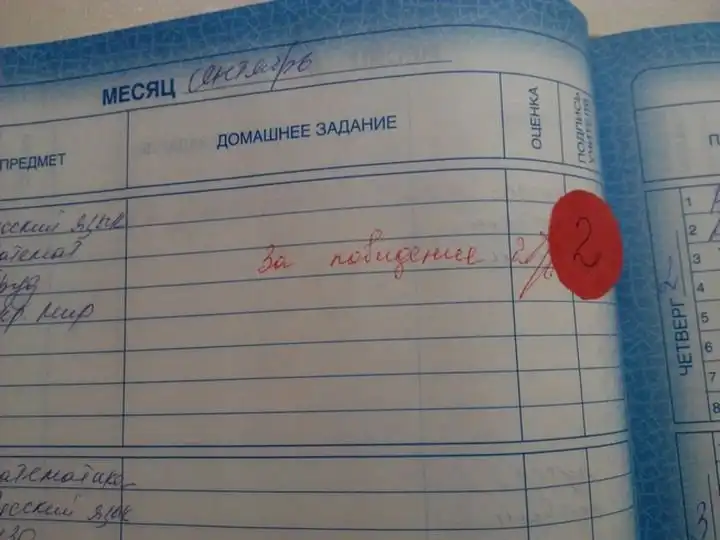 МЕСЯЦ сентябрь
ПРЕДМЕТ ДОМАШНЕЕ ЗАДАНИЕ ОЦЕНКА ПОДПИСЬ УЧИТЕЛЯ
сский язык
атемат
руд
кр мир
За повидение 2 2
атематика
усский язык
ЧЕТВЕРГ 2
1
2
3
4
5
6
7
8
3